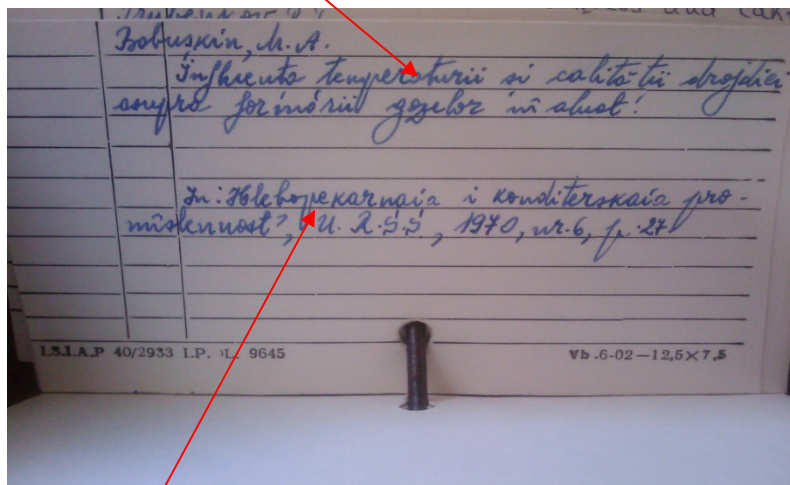 Bobuskin, M.A.
Influența temperaturii si calității drojdiei
asupra formării gazelor în aluat.
In: Hlebopekarnaia i konditerskaia pro-
mîslennost', U.R.S.S, 1970, nr.6, p.27
I.S.I.A.P 40/2933 I.P. L. 9645
Vb.6-02—12,5×7,5